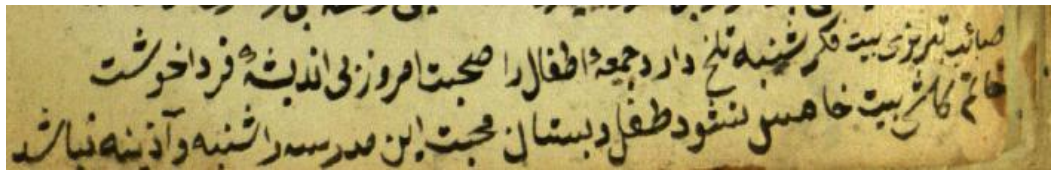 صائب تبریزی بیت فکر شنبه تلخ دارد جمعهٔ اطفال را صحبت امروز بی اندیشهٔ فردا خوشت
خاتم کاشی بیت خامش نشود طفل دبستان محبت این مدرسه را شنبه و آذینه نباشد